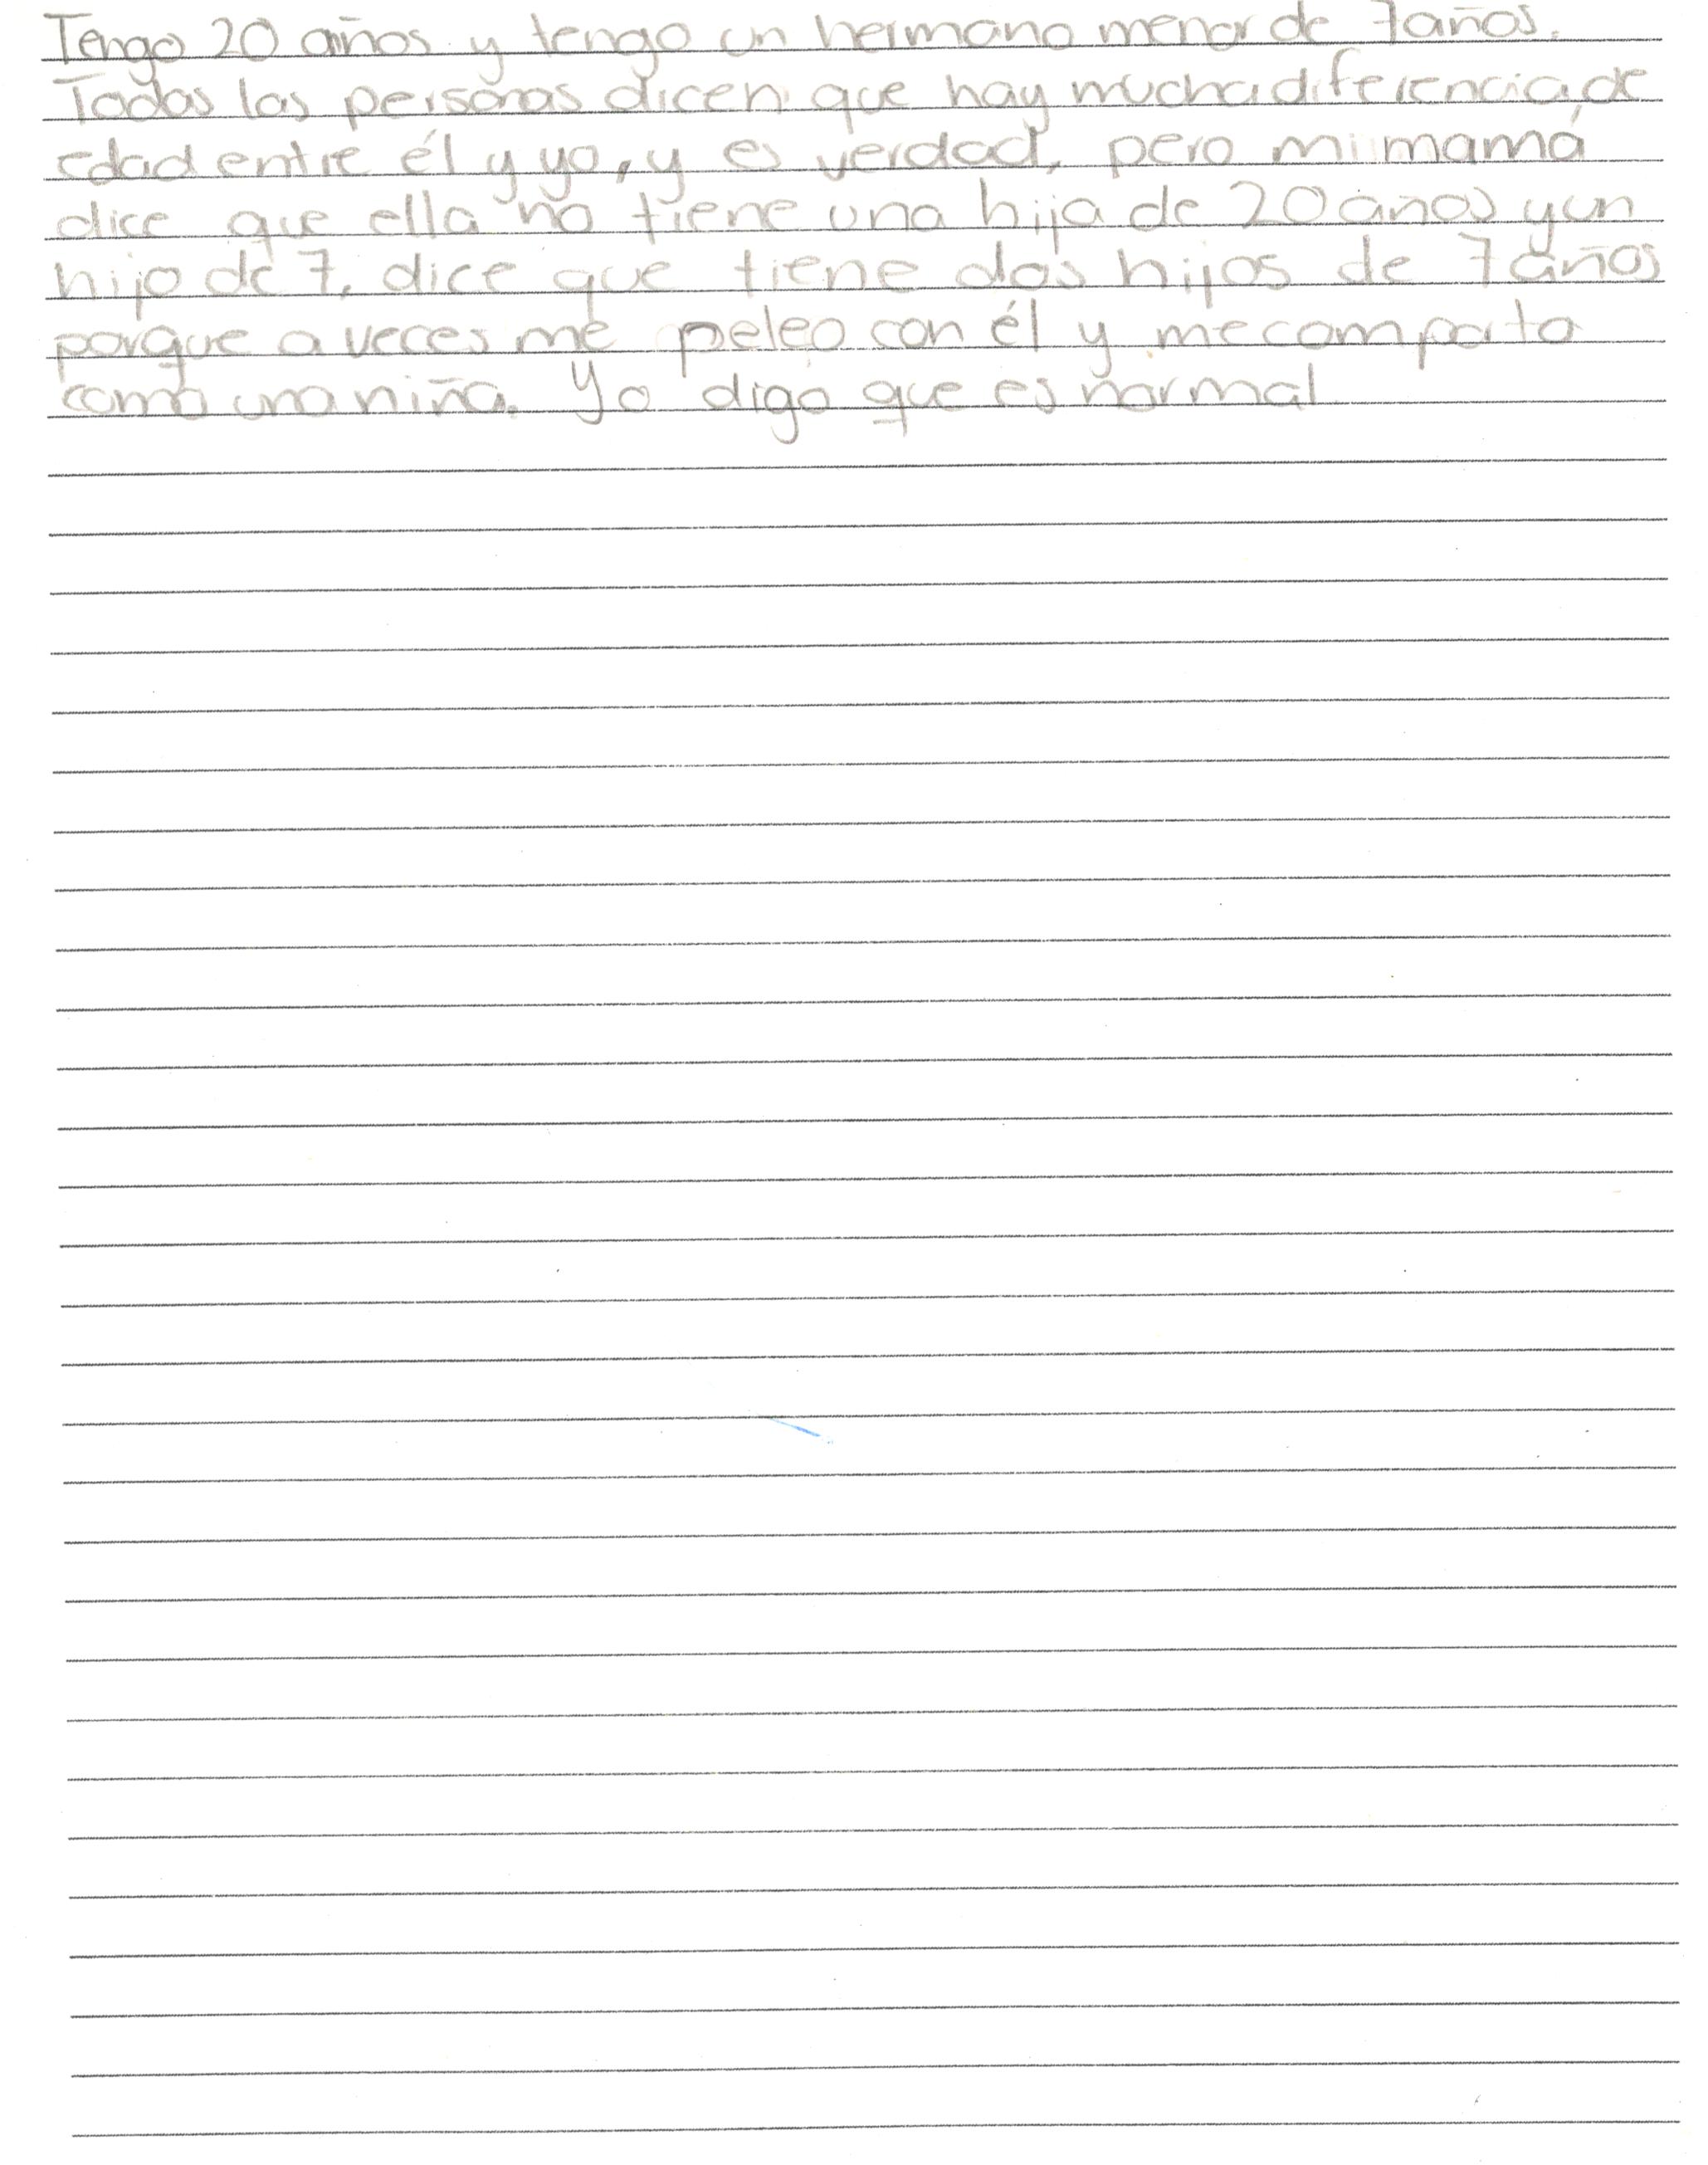 Tengo 20 años y tengo un hermano menor de 7 años.
Todas las personas dicen que hay mucha diferencia de
edad entre él y yo, y es verdad, pero mi mamá
dice que ella no tiene una hija de 20 años y un
hijo de 7, dice que tiene dos hijos de 7 años
porque a veces me peleo con él y me comporto
como una niña. Yo digo que es normal